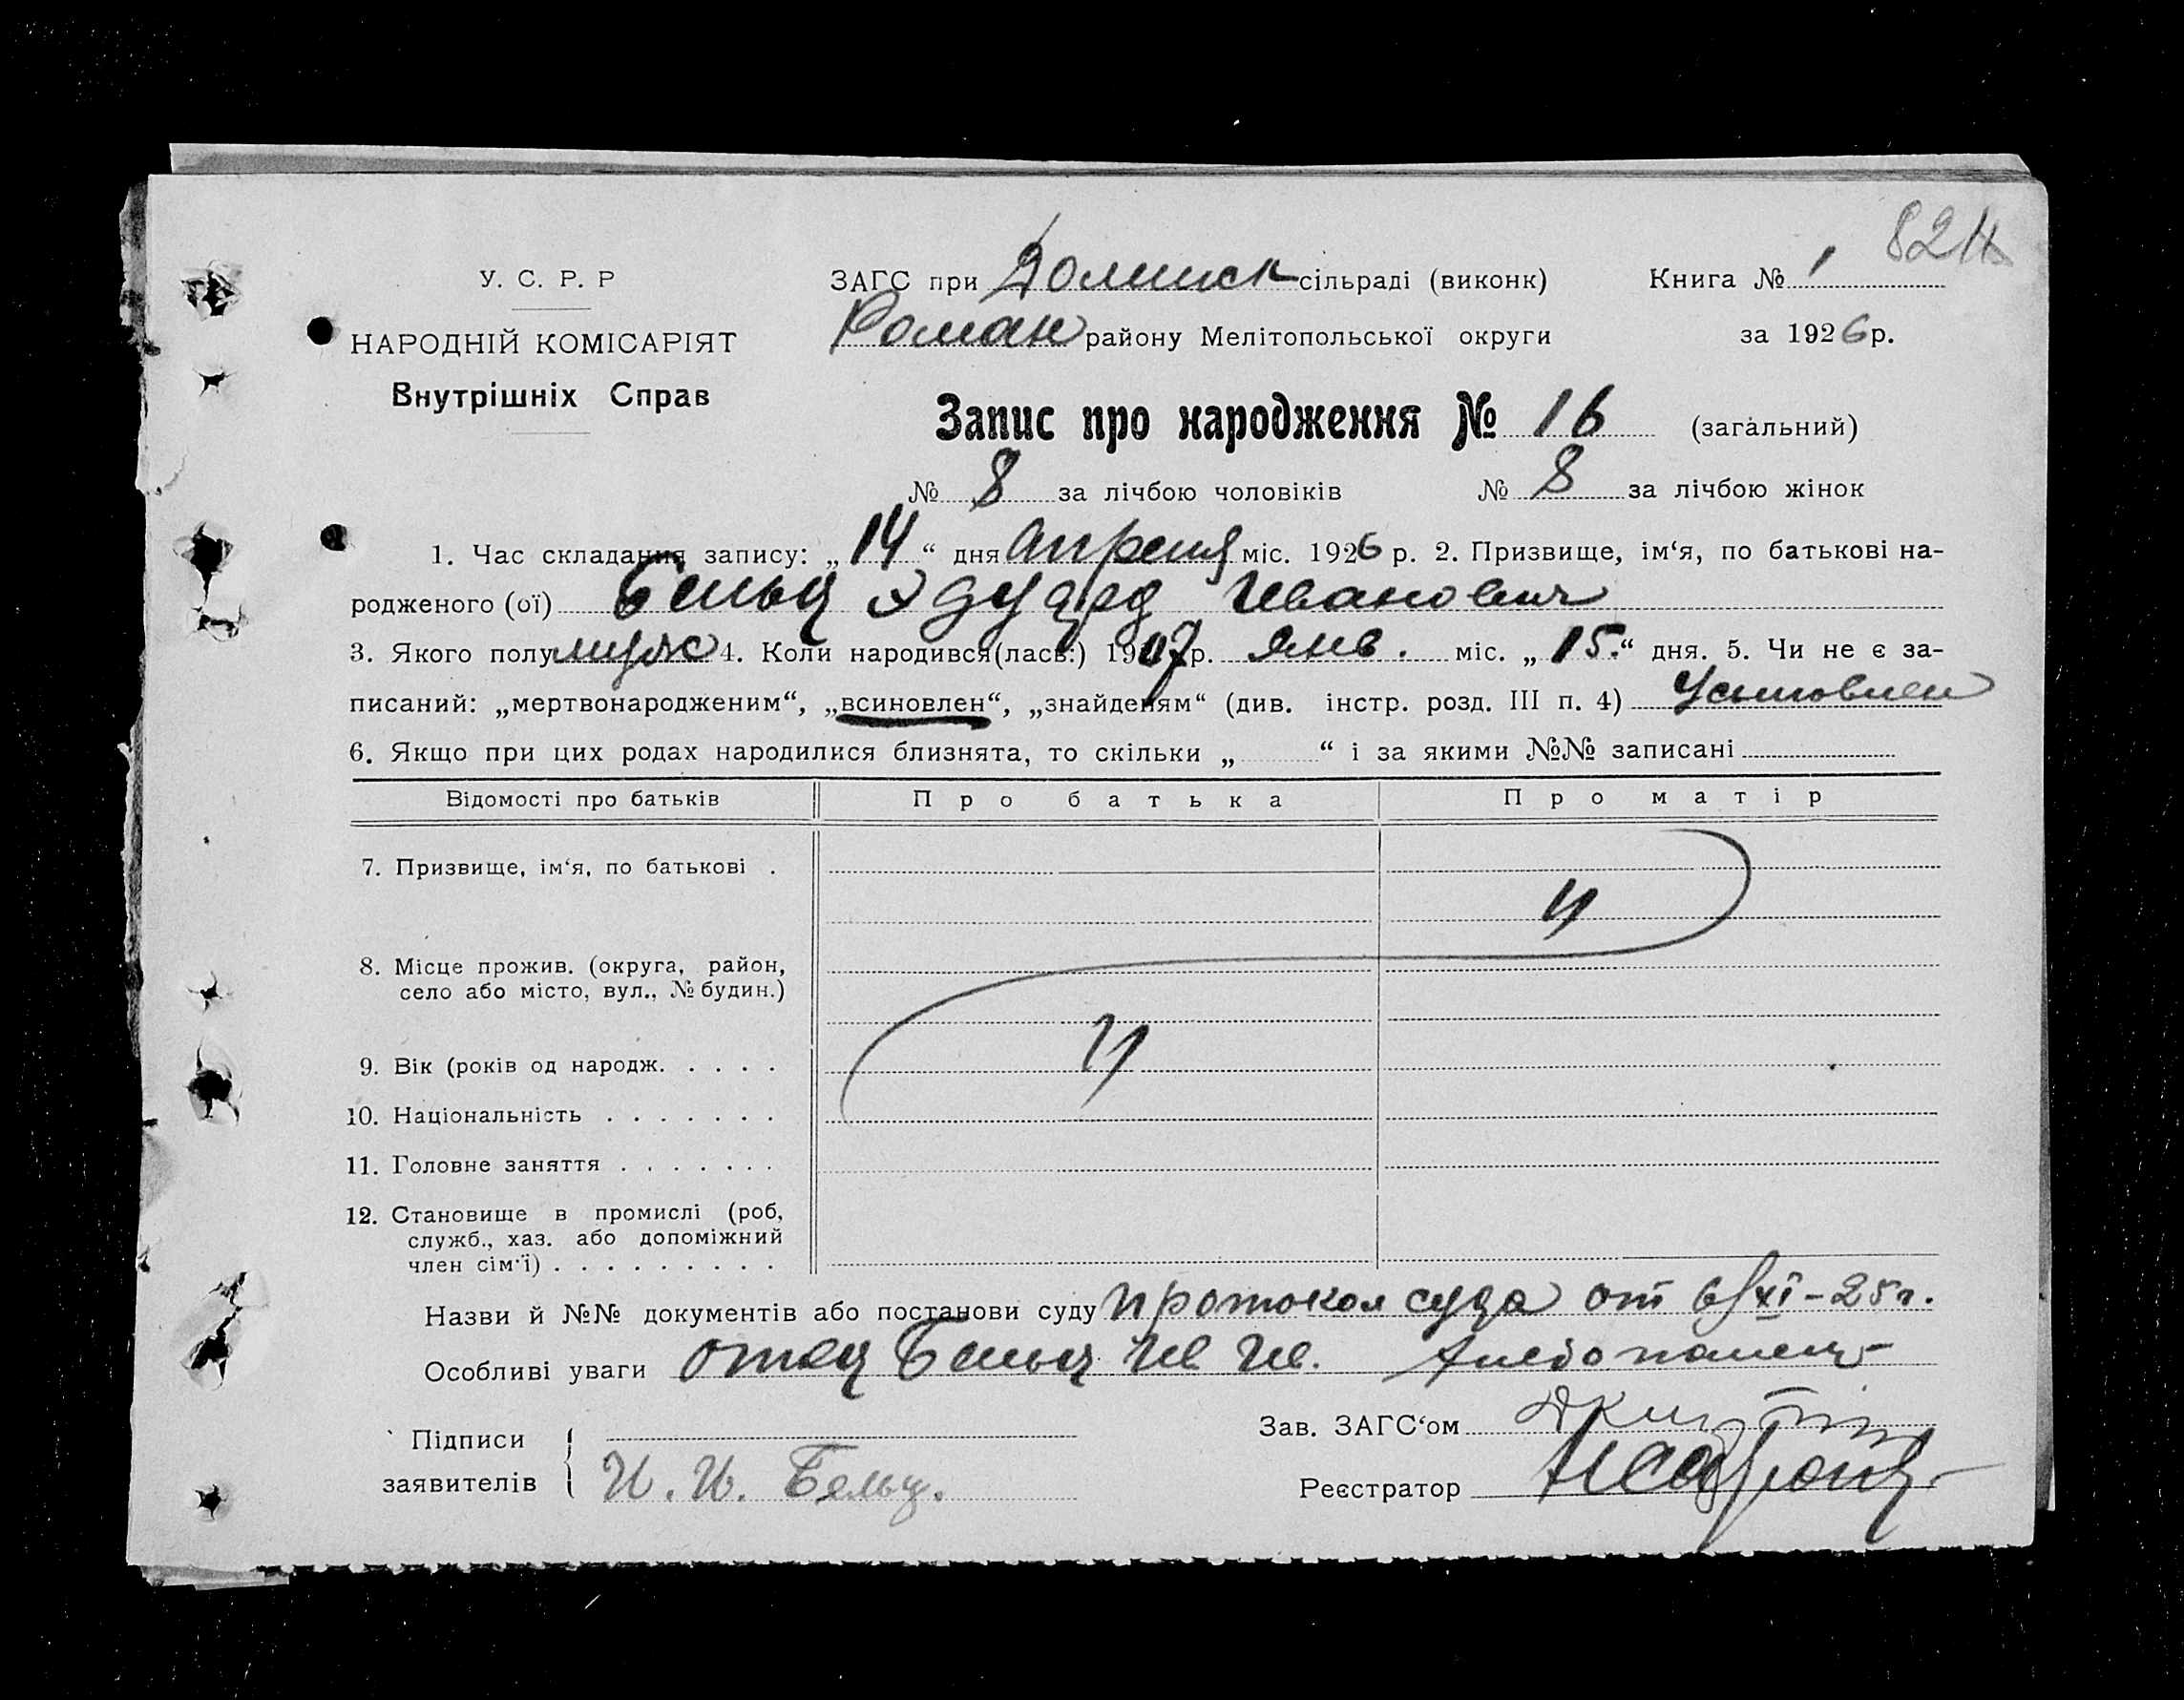 821
У. С. Р. Р
ЗАГС при Долинск сільраді (виконк)
Книга № 1
НАРОДНІЙ КОМІСАРІЯТ
Роман району Мелітопольської округи
за 1926 р.
Внутрішніх Справ
Запис про народження № 16 (загальний)
№ 8 за лічбою чоловіків № 8 за лічбою жінок
1. Час складання запису: „14“ дня Апреля міс. 1926 р. 2. Призвище, ім‘я, по батькові на-
родженого (ої) Бельц Эдуард Иванович
3. Якого полу муж 4. Коли народився(лась:) 1907 р. Янв. міс. „15.“ дня. 5. Чи не є за-
писаний: „мертвонародженим“, „всиновлен“, „знайденям“ (див. інстр. розд. III п. 4) Усиновлен
6. Якщо при цих родах народилися близнята, то скільки „ “ і за якими №№ записані
Відомості про батьків
Про батька
Про матір
7. Призвище, ім‘я, по батькові .
8. Місце прожив. (округа, район,
село або місто, вул., № будин.)
9. Вік (років од народж. . . . .
10. Національність . . . . . . .
11. Головне заняття . . . . . . .
12. Становище в промислі (роб,
служб., хаз. або допоміжний
член сім‘ї) . . . . . . . . .
Назви й №№ документів або постанови суду Протокол суда от 6/XI-25 г.
Особливі уваги отец Бельц Ив Ив. Хлебопашец
Зав. ЗАГС‘ом
Підписи
заявителів
И. И. Бельц.
Реєстратор